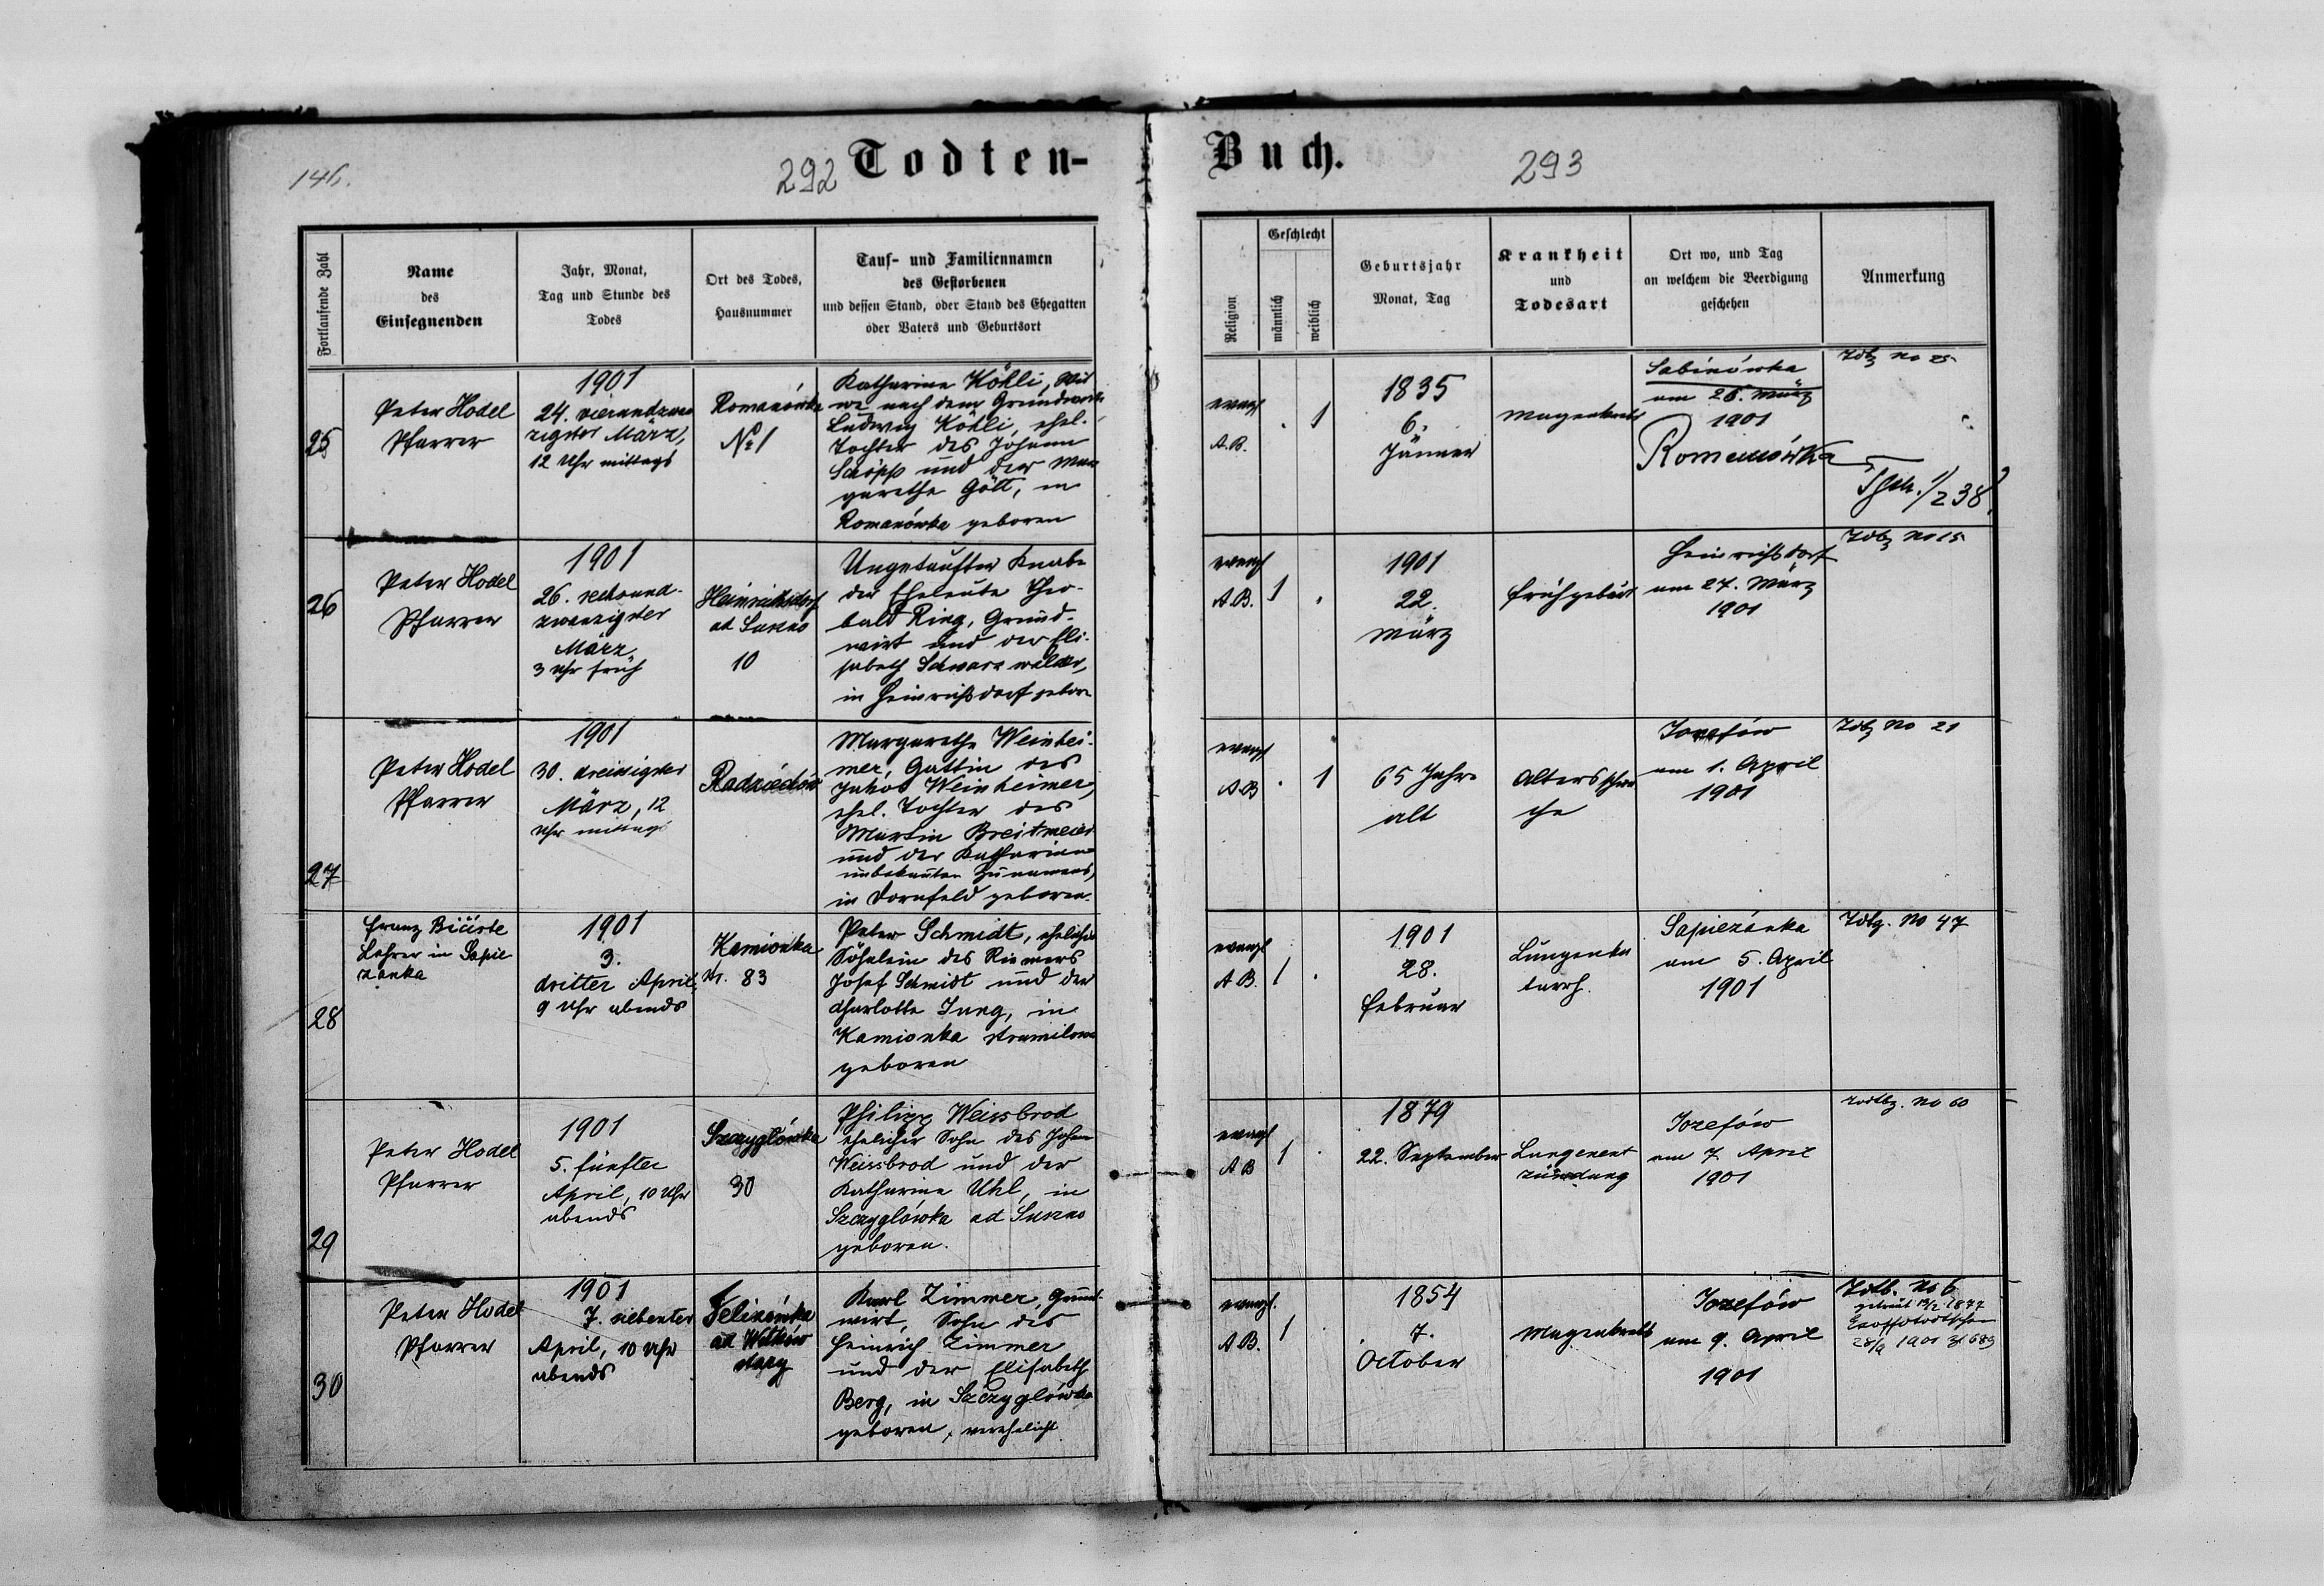 146.
292 Todten-
Buch. 293
Fortlaufende Zahl
Name
des
Einsegnenden
Jahr, Monat,
Tag und Stunde des
Todes
Ort des Todes,
Hausnummer
Tauf- und Familiennamen
des Gestorbenen
und dessen Stand, oder Stand des Ehegatten
oder Vaters und Geburtsort
Religion
Geschlecht
männlich
weiblich
Geburtsjahr
Monat, Tag
Krankheit
und
Todesart
Ort wo, und Tag
an welchem die Beerdigung
geschehen
Anmerkung
25
Peter Hodel
Pfarrer
1901
24. vierundzwan
zigster März,
12 Uhr mittags
Romanówka
No 1
Katharina Köhli, Wit
we nach dem Grundwirte
Ludwig Köhli, ehel.
Tochter des Johann
Schöpp und der Mar
garetha Gött, in
Romanówka geboren
evang
A.B.
. 1
1835
6.
Jänner
Magenkrebs
Sabinówka
am 26. März
1901
Romanówka
Tdbg No 25
1/2 38
26
Peter Hodel
Pfarrer
1901
26. sechsund-
zwanzigster
März
3 Uhr früh
Heinrichsdorf
ad Suszno
10
Ungetaufter Knabe
der Eheleute Theo-
bald Ring, Grund-
wirt und der Eli-
sabeth Schwarzwälder,
in Heinrichsdorf geboren
evang
A.B.
1 .
1901
22.
März
Frühgeburt
Heinrichsdorf
am 27. März
1901
Tdbg No 15
27
Peter Hodel
Pfarrer
1901
30. dreissigster
März, 12
Uhr mittags
Radziechów
Margaretha Weinhei-
mer, Gattin des
Jakob Weinheimer,
ehel. Tochter des
Martin Breitmeier
und der Katharina
unbekannten Zunamens,
in Dornfeld geboren.
evang
A.B
. 1
65 Jahre
alt
Altersschwä
che
Jozefów
am 1. April
1901
Tdbg No 21
28
Franz Bičiste
Lehrer in Sapie
żanka
1901
3.
dritter April,
9 Uhr abends
Kamionka
Nr. 83
Peter Schmidt, eheliches
Söhnlein des Riemers
Josef Schmidt und der
Charlotte Jung, in
Kamionka strumilowa
geboren
evangl
A.B.
1 .
1901
28.
Februar
Lungenka
tarrh.
Sapieżanka
am 5. April
1901
Tdbg. No 47
29
Peter Hodel
Pfarrer
1901
5. fünfter
April, 10 Uhr
abends
Szczyglówka
30
Philipp Weissbrod
ehelicher Sohn des Johann
Weissbrod und der
Katharina Uhl, in
Szczyglówka ad Suszno
geboren.
evangl
A B
1 .
1879
22. September
Lungenent
zündung
Jozefów
am 7. April
1901
Todtbg. No 60
30
Peter Hodel
Pfarrer
1901
7. siebenter
April, 10 Uhr
abends
Felizienka
ad Witków
stary
Karl Zimmer Grund-
wirt, Sohn des
Heinrich Zimmer
und der Elisabeth
Berg, in Szczyglówka
geboren, verehelicht
evangl.
A.B.
1
1854
7.
October
Magenkrebs
Jozefów
am 9. April
1901
Tdtb. No 6
getraut 13/2 1877
28/9 1901 Zl 683